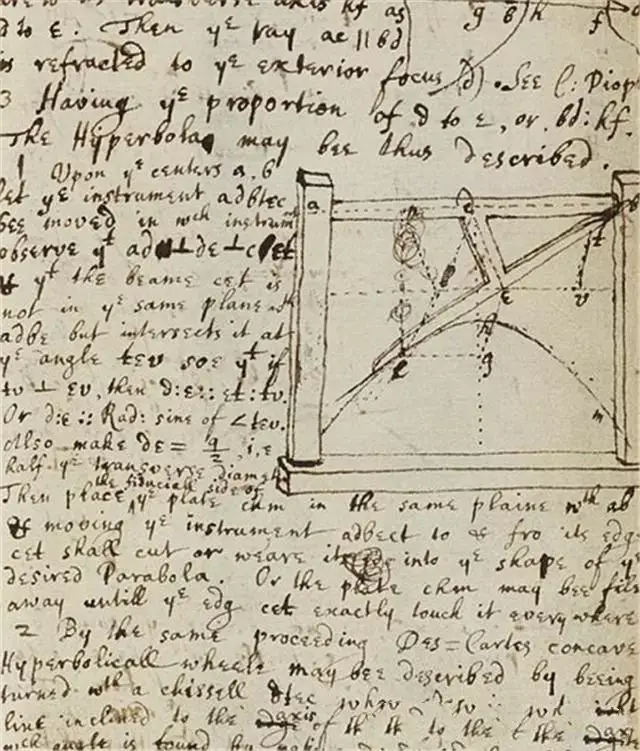 transverse axis hf as
d to ε. Then yᵉ ray ae || bd
is refracted to yᵉ exterior focus (d). See C: Diop
3 Having yᵉ proportion of d to ε, or bd: hf.
The Hyperbola may bee thus described.
1 Upon yᵉ centers a, b
let yᵉ instrument adbtec
bee moved in wᶜʰ instrumᵗ
observe yᵗ ad ⊥ de ⊥ cet
& yᵗ the beame cet is
not in yᵉ same plane wᵗʰ
adbe but intersects it at
yᵉ angle tev soe yᵗ if
tv ⊥ ev, then d:e :: et:tv.
Or d:e :: Rad: sine of ∠tev.
Also make de = q/2, i.e
half yᵉ transverse diameter
the fiduciall side of
Then place yᵉ plate chm in the same plaine wᵗʰ ab
& moving yᵉ instrument adbect to & fro its edg
cet shall cut or weare it into yᵉ shape of yᵉ
desired Parabola. Or the plate chm may bee file
away untill yᵉ edg cet exactly touch it everywhere
2 By the same proceeding Des=Cartes concave
Hyperbolicall wheele may bee described by being
turned wᵗʰ a chissell dtec
line inclined to the of to the
angle is found by
g h f
a c b
t
e v
h
g
m